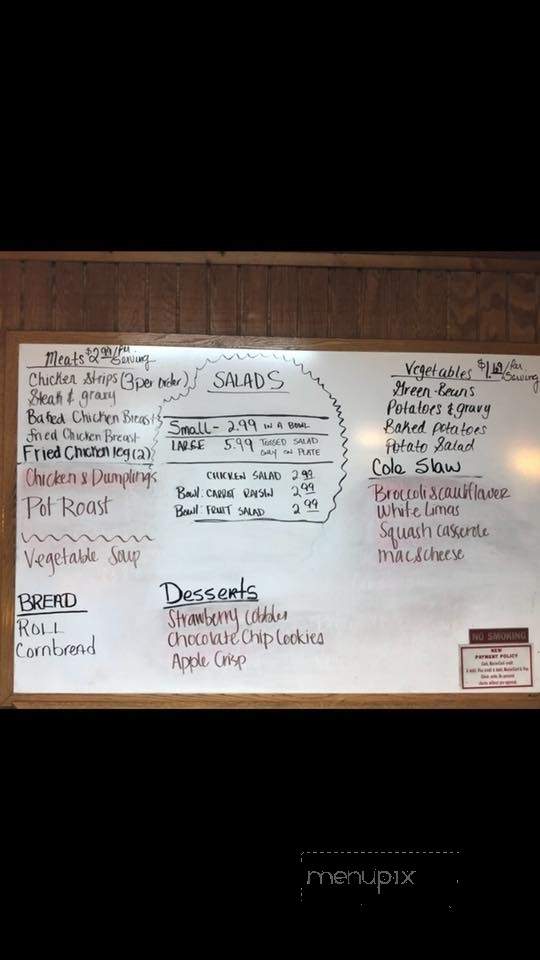 Meats $2.99/Per Serving
Chicken Strips (3 per order)
Steak & gravy
Baked Chicken Breast
Fried Chicken Breast
Fried Chicken leg (2)
Chicken & Dumplings
Pot Roast
Vegetable Soup
BREAD
ROLL
Cornbread
SALADS
Small - 2.99 IN A BOWL
LARGE 5.99 TOSSED SALAD ONLY ON PLATE
CHICKEN SALAD 2.99
Bowl: CARROT RAISIN 2.99
Bowl: FRUIT SALAD 2.99
Desserts
Strawberry Cobbler
Chocolate Chip Cookies
Apple Crisp
Vegetables $1.69/Per Serving
Green Beans
Potatoes & gravy
Baked potatoes
Potato Salad
Cole Slaw
Broccoli & cauliflower
White Limas
Squash Casserole
Mac & cheese
NO SMOKING
NEW
PAYMENT POLICY
menupix